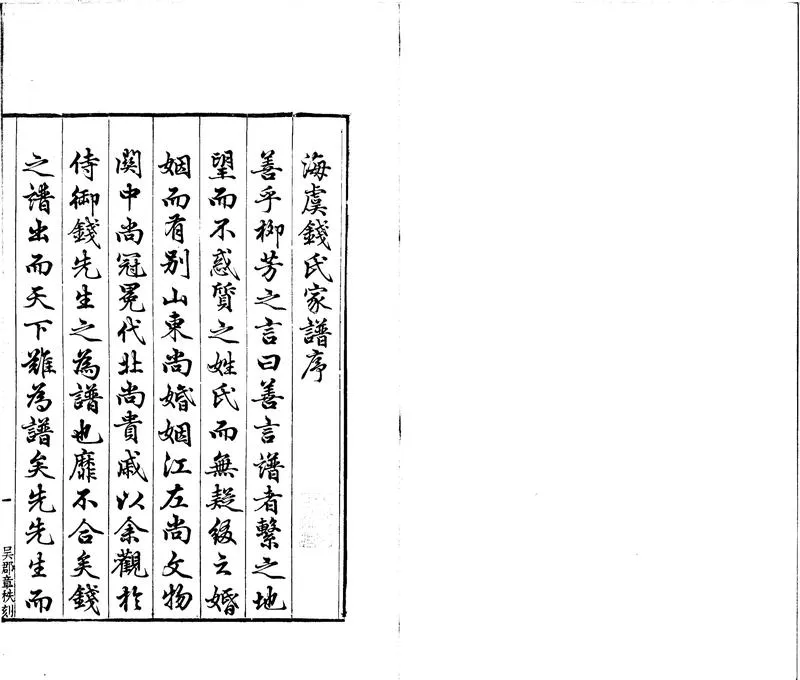 海虞錢氏家譜序
善乎柳芳之言曰善言譜者繫之地
望而不惑質之姓氏而無疑綴之婚
姻而有別山東尚婚姻江左尚文物
關中尚冠冕代北尚貴戚以余觀於
侍御錢先生之為譜也靡不合矣錢
之譜出而天下難為譜矣先先生而
一
吳郡章秩刻